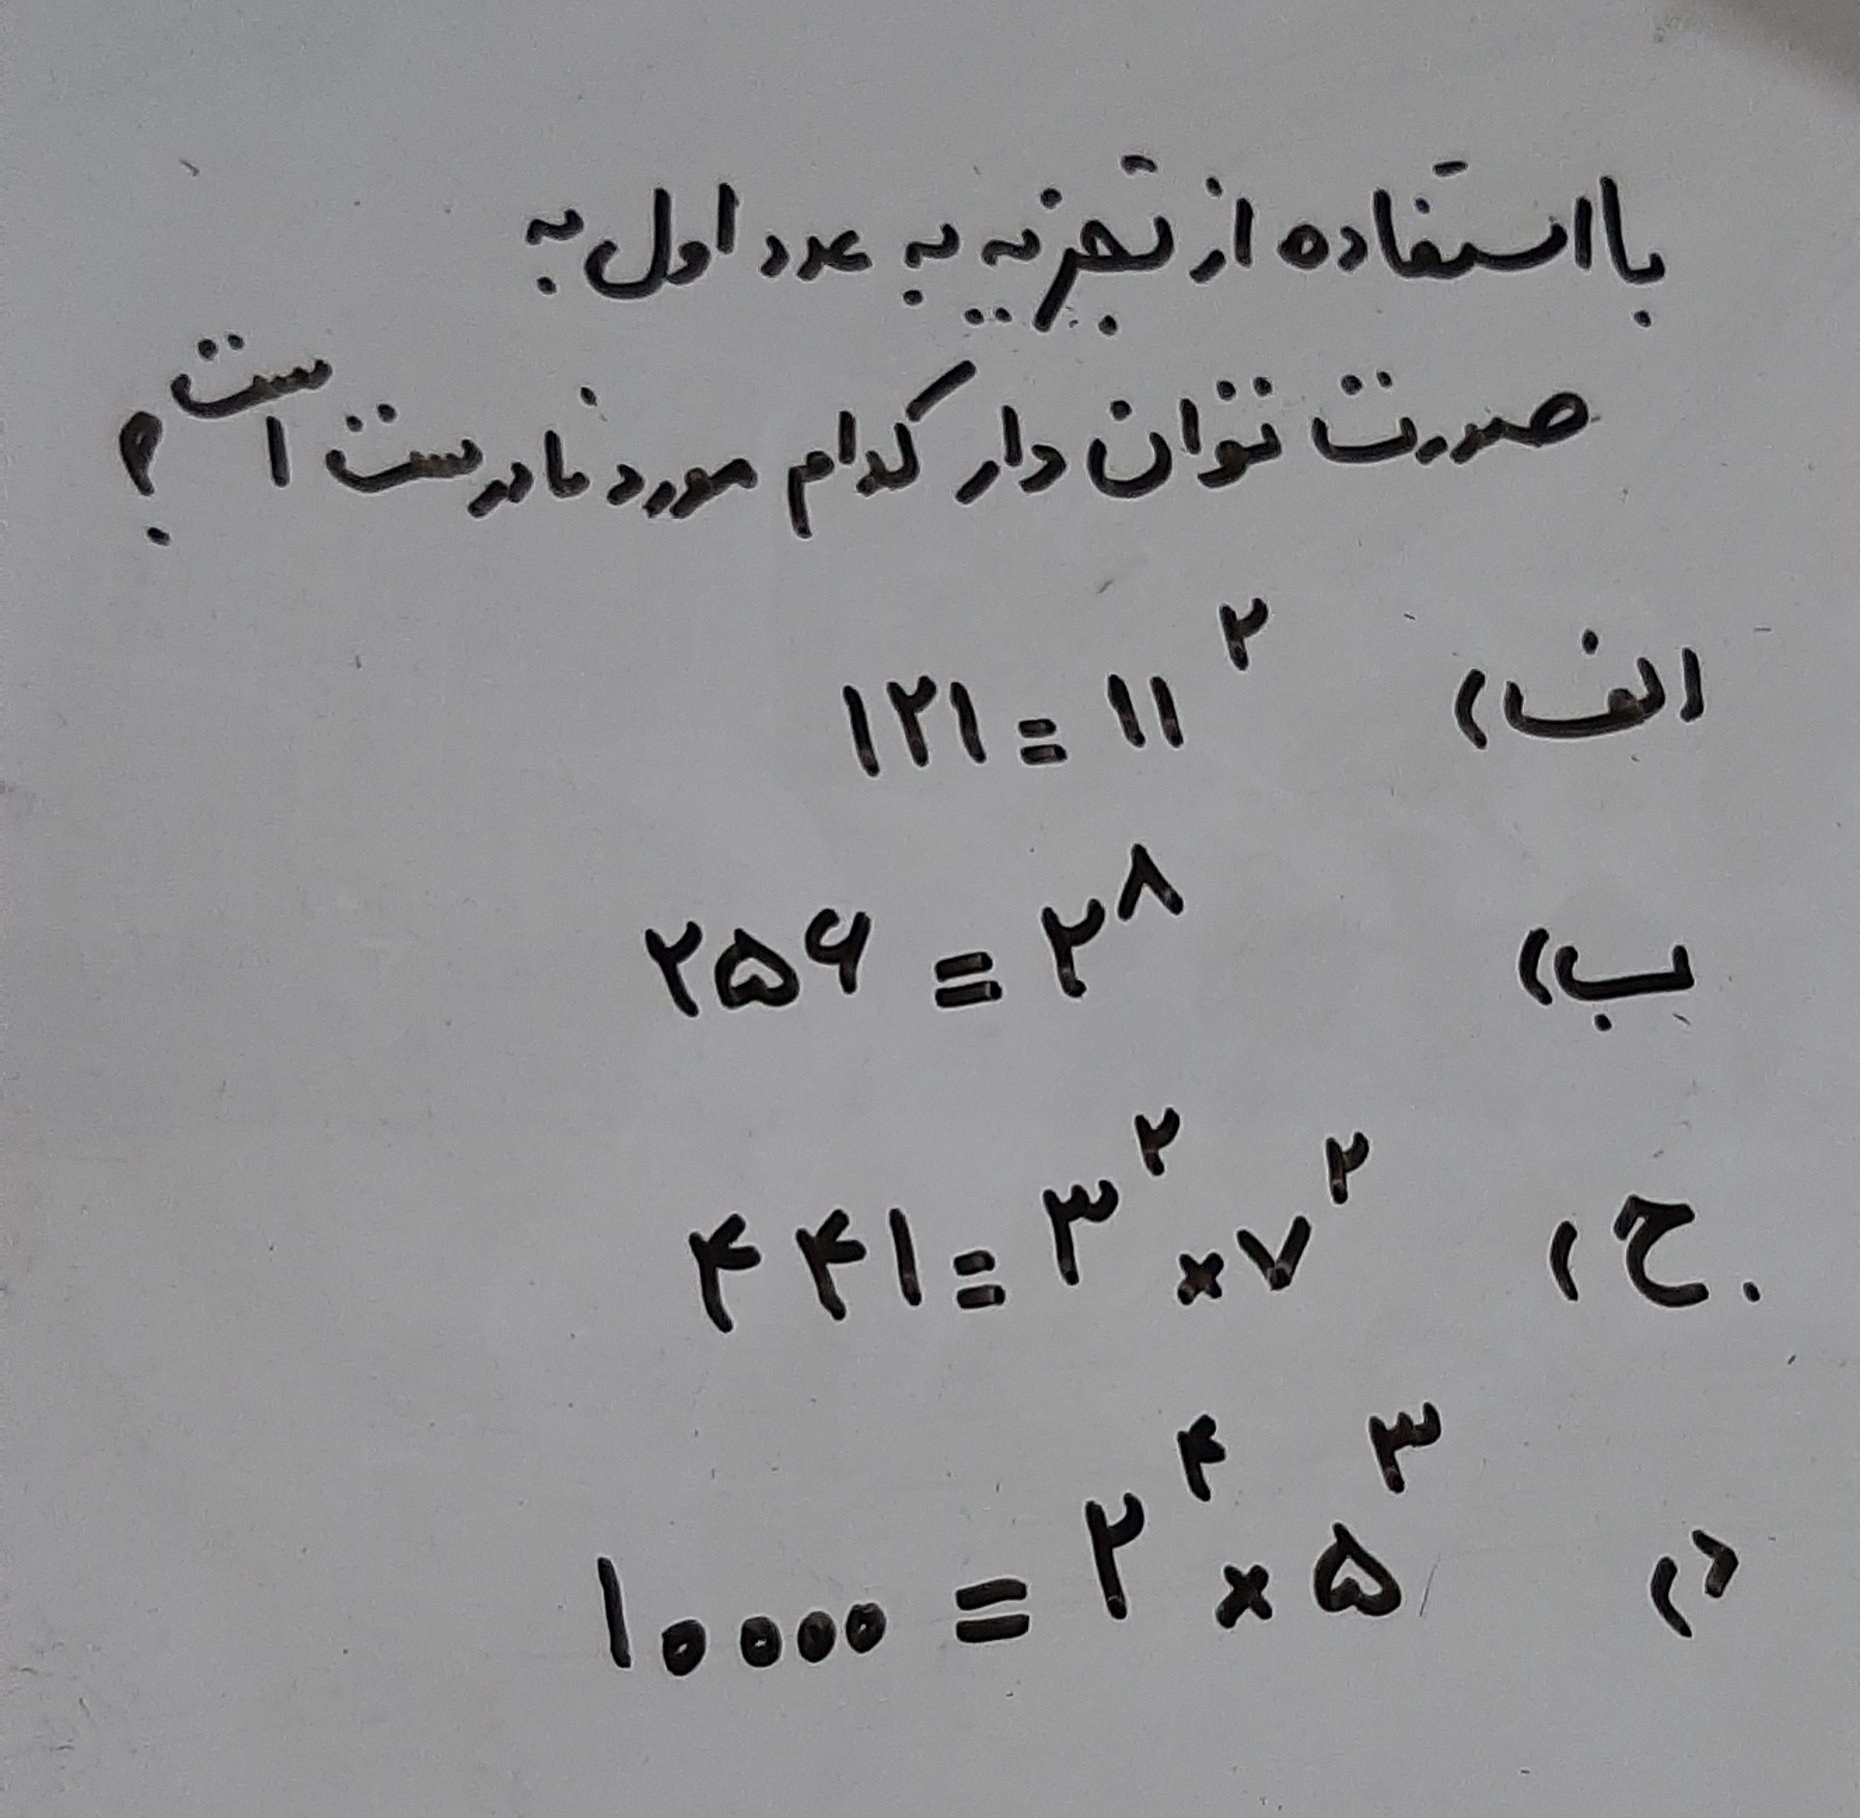 با استفاده از تجزیه به عدد اول به
صورت توان دار کدام مورد نادرست است؟
الف) ۱۲۱ = ۱۱^۲
ب) ۲۵۶ = ۲^۸
ج) ۴۴۱ = ۳^۲ × ۷^۲
د) ۱۰۰۰۰ = ۲^۴ × ۵^۳